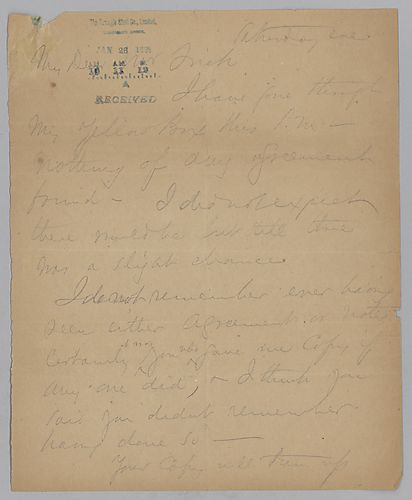 The Carnegie Steel Co., Limited,
Saturday eve
JAN 26 189
My Dear Mr Frick
AM
10 11 12
RECEIVED
I have gone through
My Yellow Box this P.M. —
nothing of any agreement
found — I did not expect
there would be but still there
was a slight chance
I do not remember ever having
seen either Agreement or Note
Certainly if you gave me Copy if
any one did, & I think you
said you didnt remember
having done so —
Your Copy will turn up